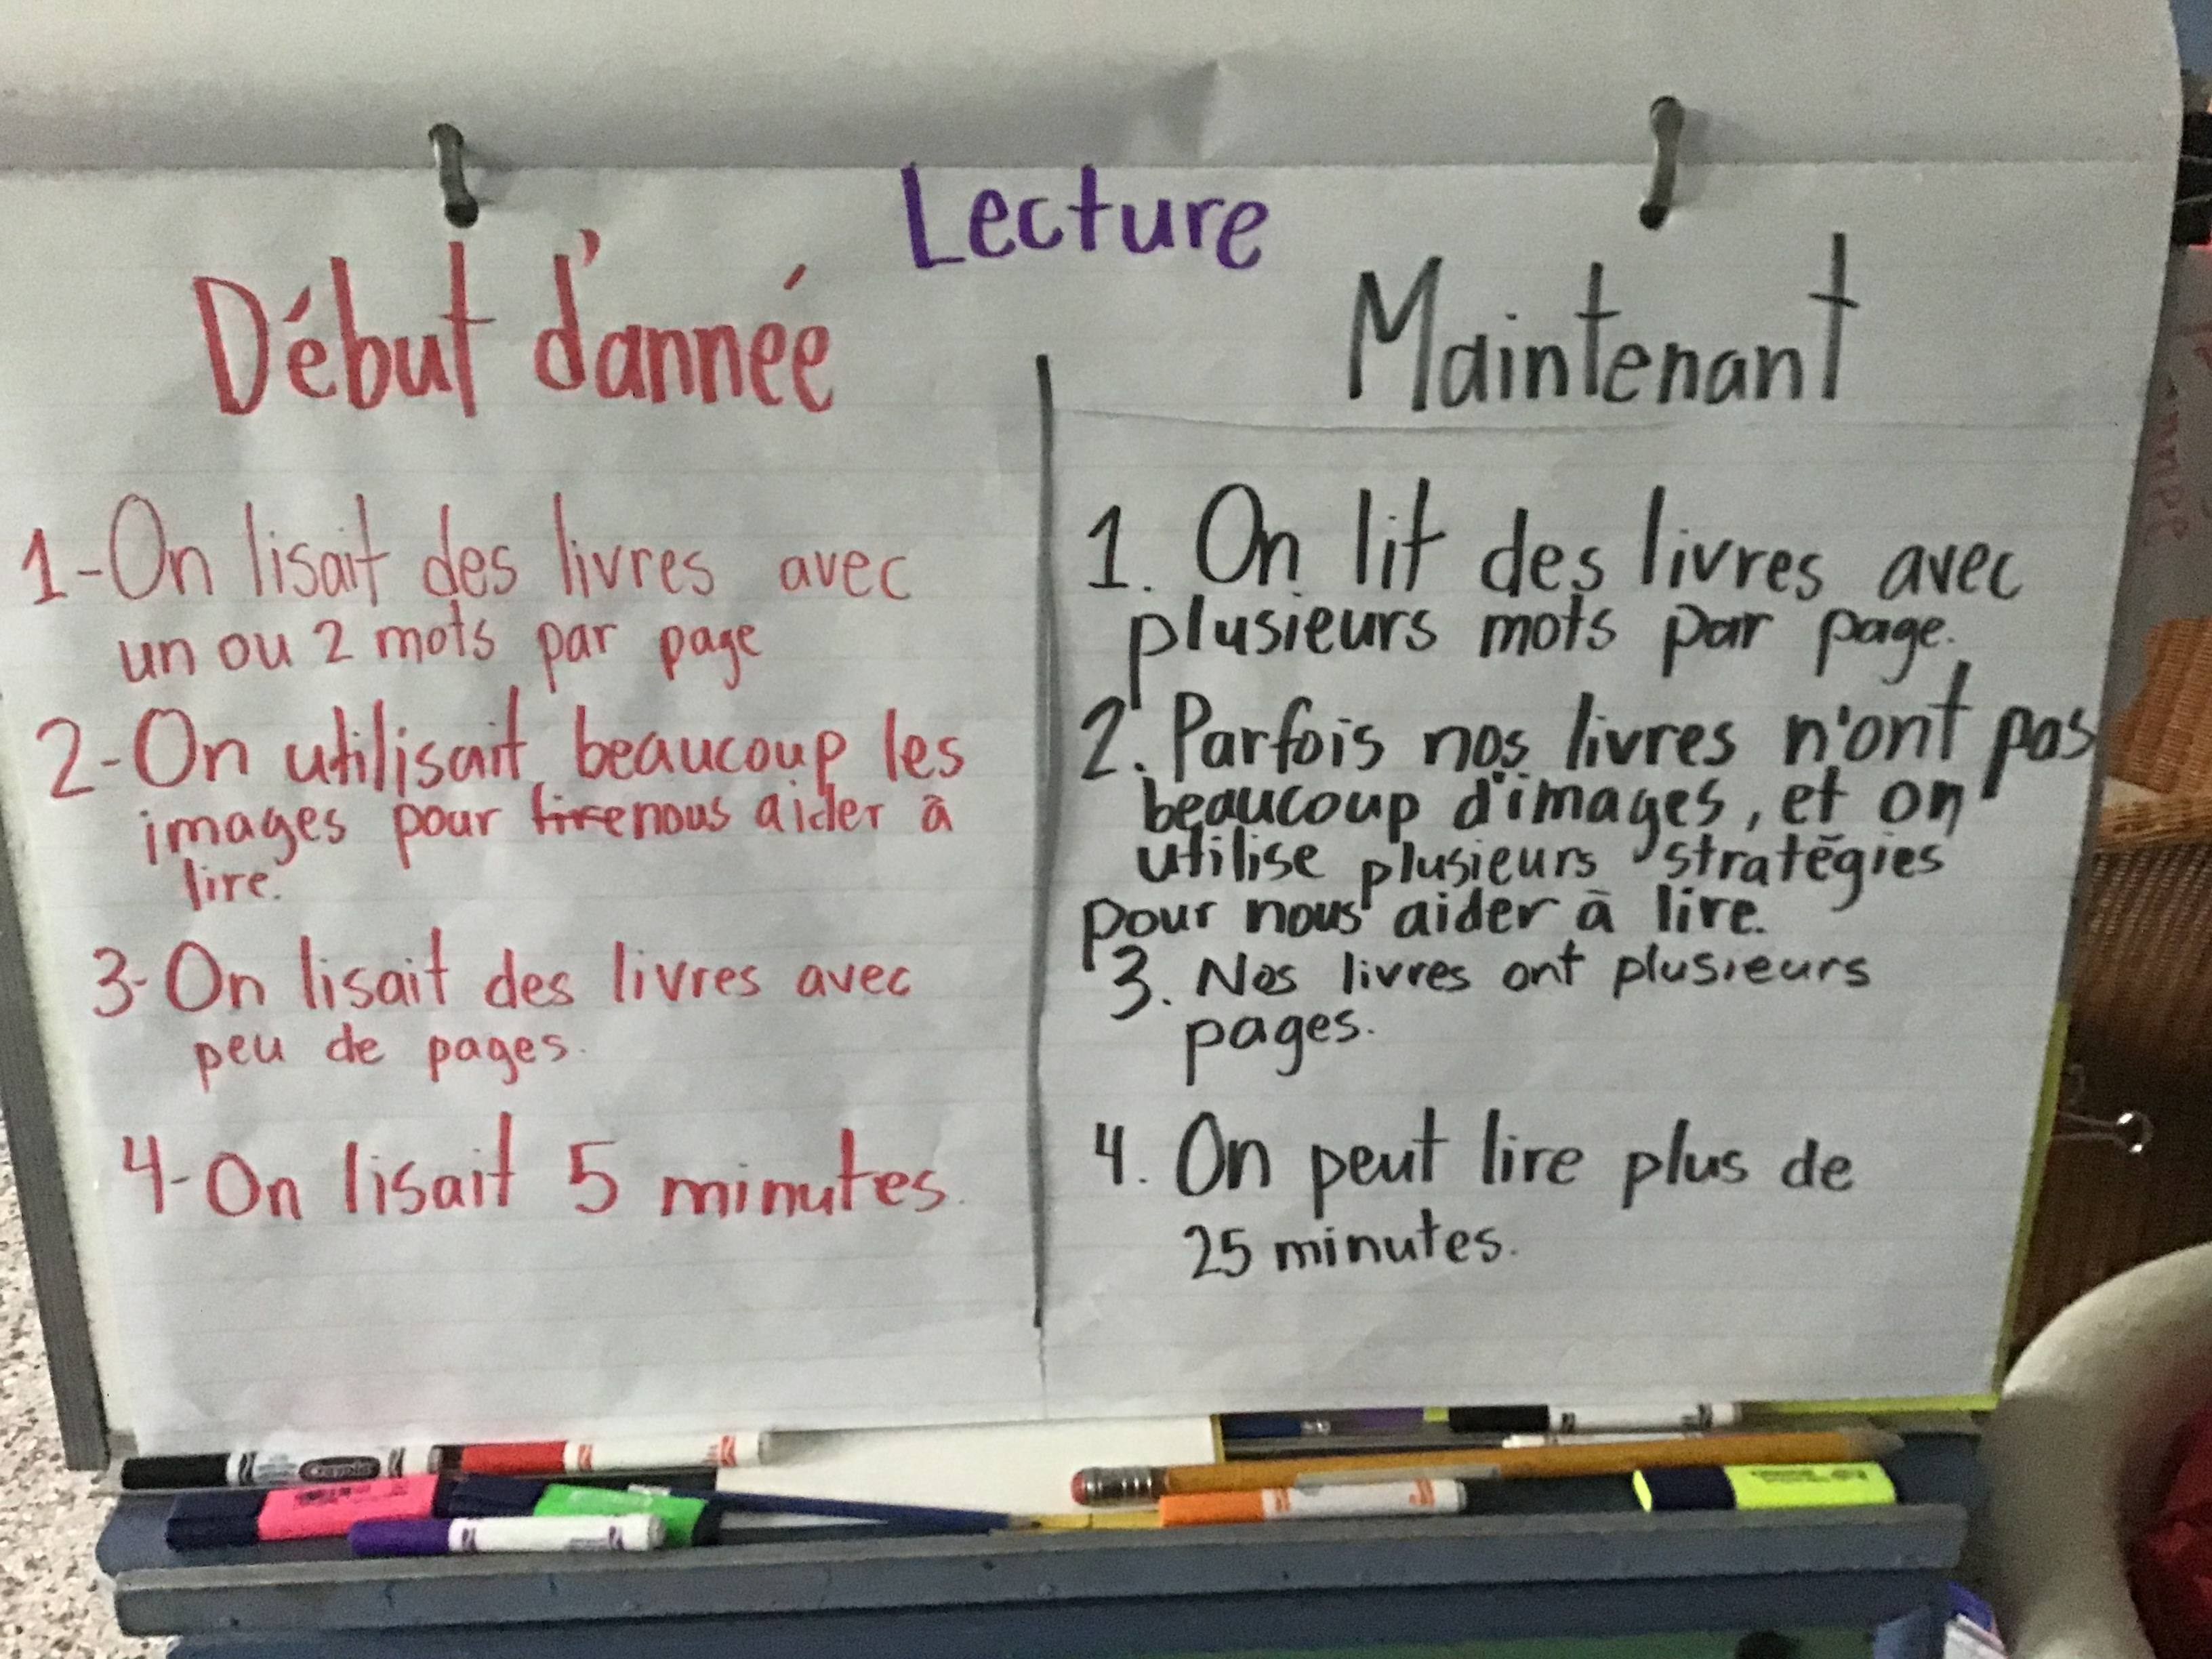 Lecture
Début d'année
1-On lisait des livres avec
un ou 2 mots par page
2-On utilisait beaucoup les
images pour lire nous aider à
lire.
3-On lisait des livres avec
peu de pages.
4-On lisait 5 minutes.
Maintenant
1. On lit des livres avec
plusieurs mots par page.
2. Parfois nos livres n'ont pas
beaucoup d'images, et on
utilise plusieurs stratégies
pour nous aider à lire.
3. Nos livres ont plusieurs
pages.
4. On peut lire plus de
25 minutes.
Crayola